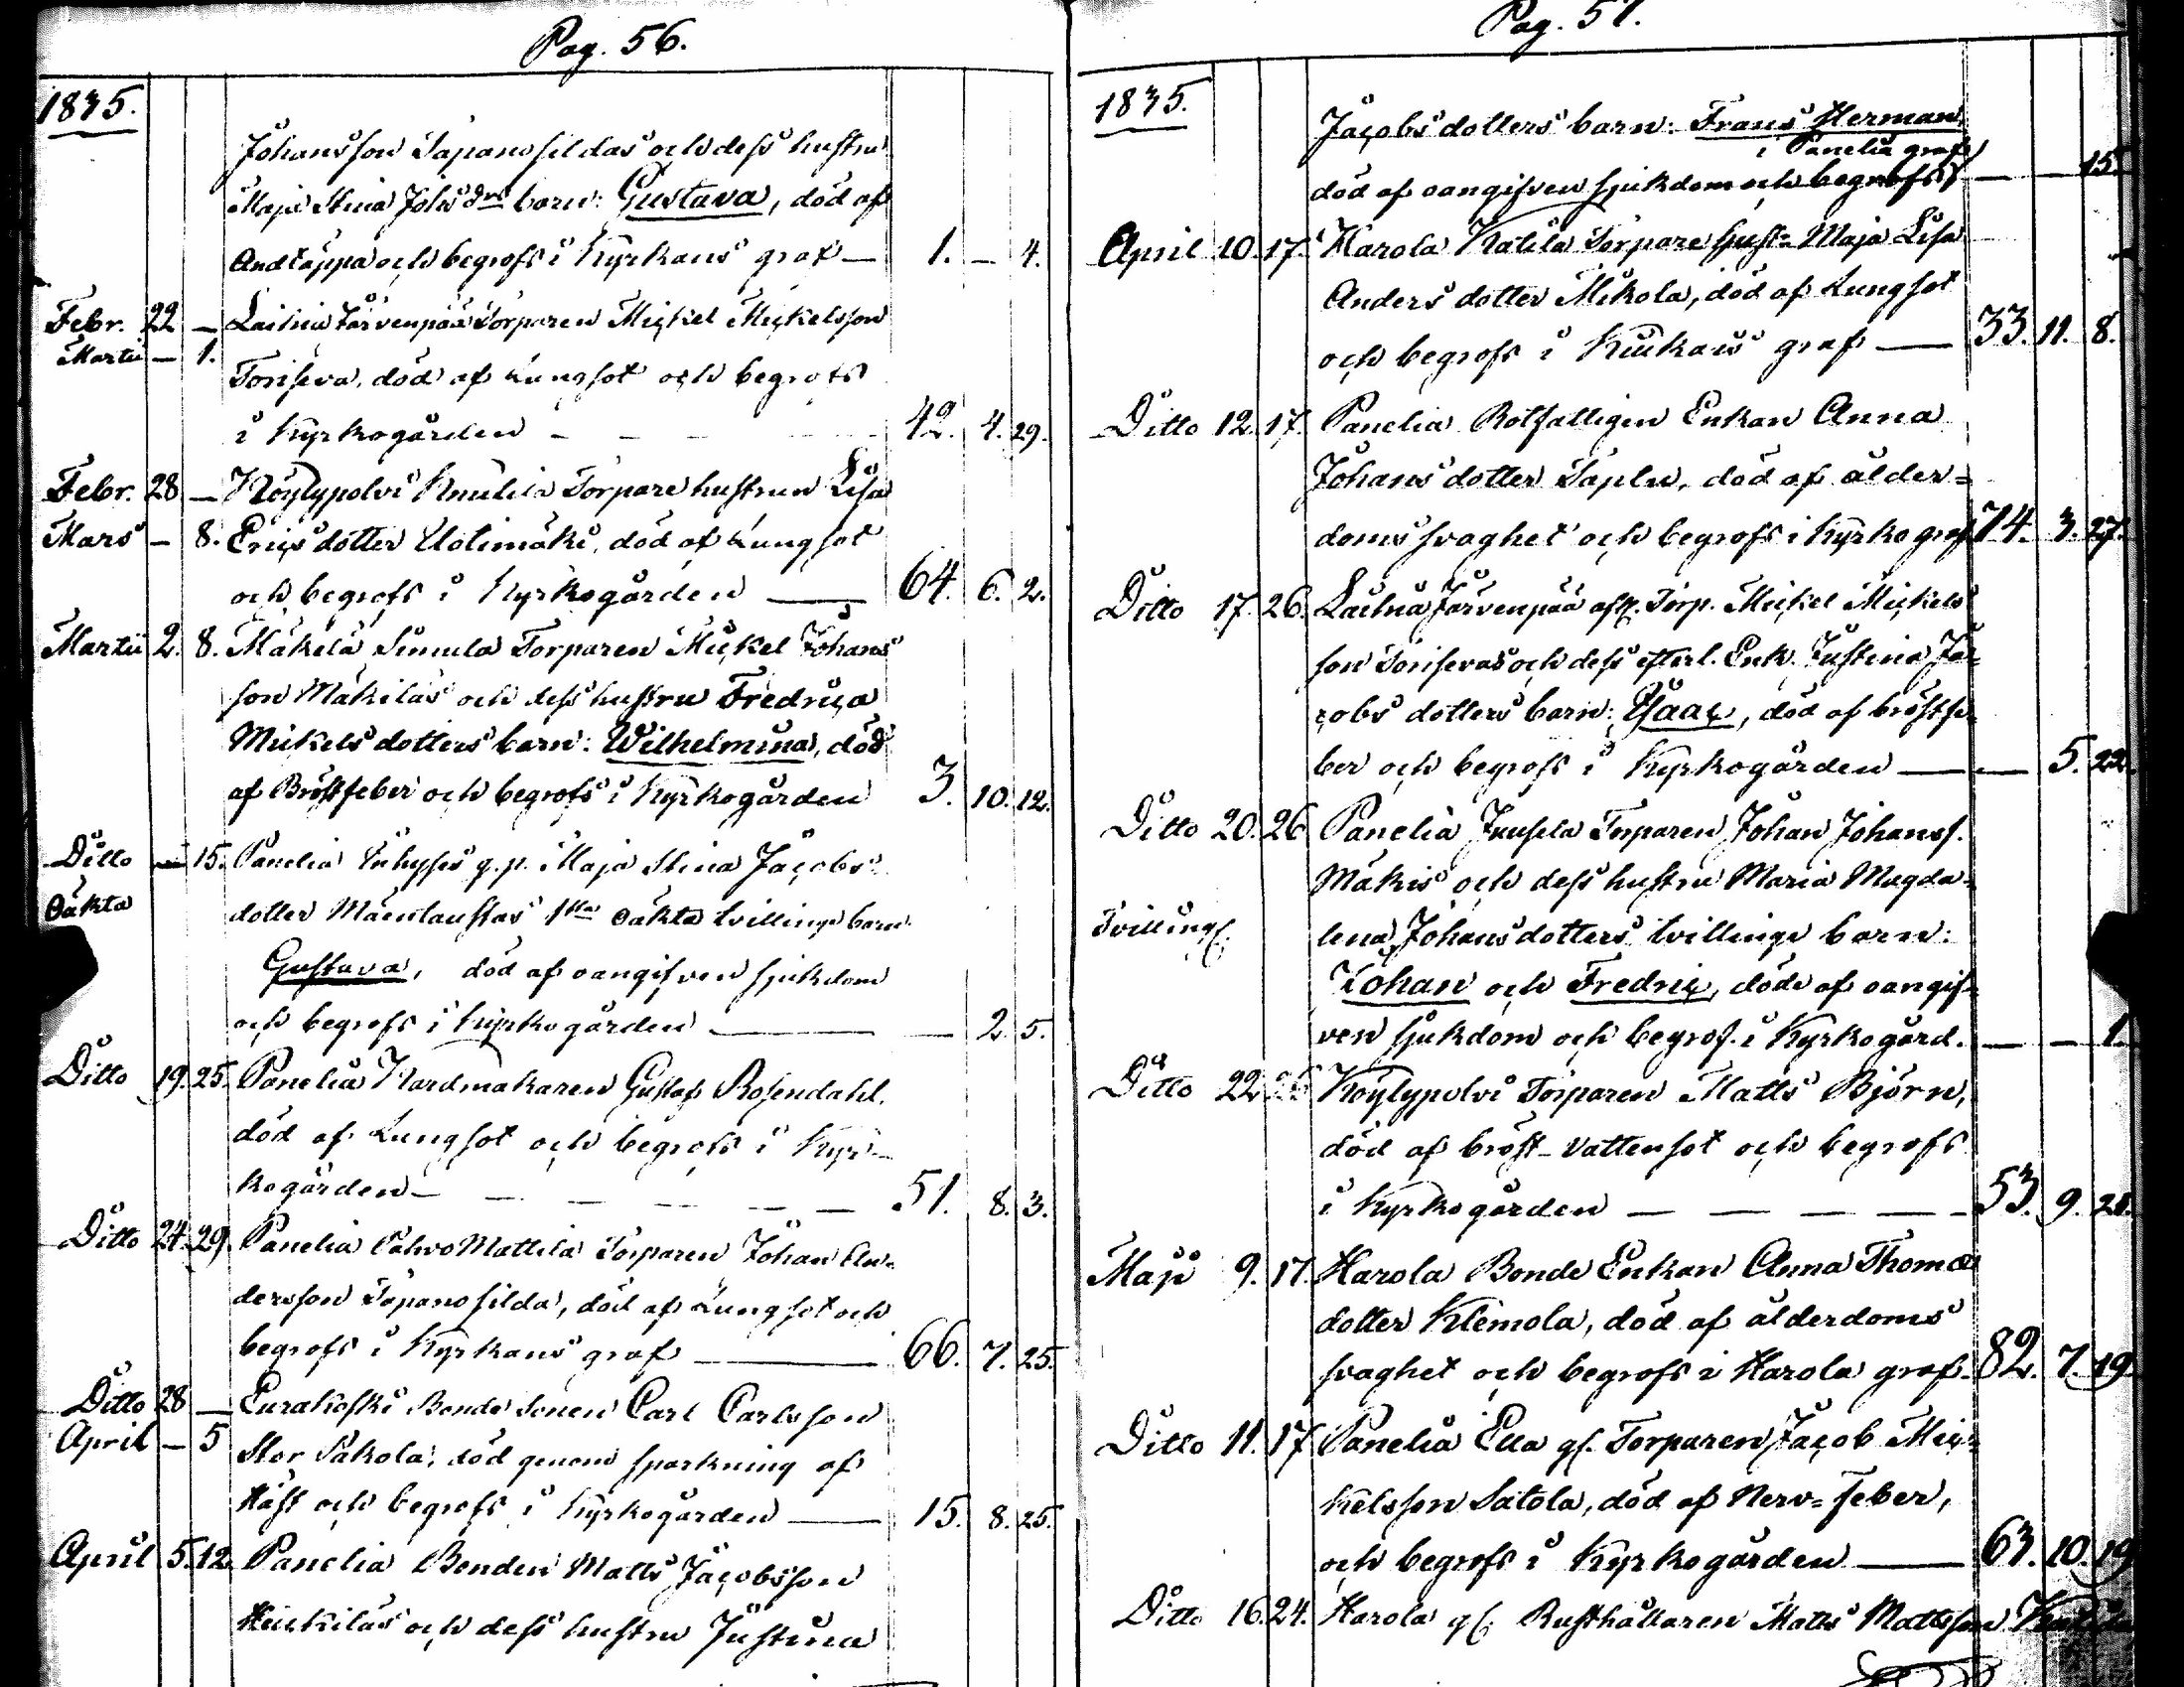 Pag. 56.
1835.
Johansson Sapanosildas och dess hustru
Maja Stina Johs drs barn: Gustava, död af
Andtäppa och begrofs i Kyrkans graf — 1. — 4.
Febr. 22 — Laihia Järvenpää Torparen Mickel Mickelsson
Martii — 1.
Toriseva, död af Lungsot och begrofs
i Kyrkogården — 42. 4. 29.
Febr. 28 — Köylypolvi Knuutila Torpare hustrun Lisa
Mars — 8. Ericsdotter Uotimäki, död af Lungsot
och begrofs i Kyrkogården — 64. 6. 2.
Martii 2. 8. Mäkelä Simula Torparen Mickel Johans
son Mäkiläs och dess hustru Fredrica
Mickelsdotters barn: Wilhelmina, död
af Bröstfeber och begrofs i Kyrkogården 3. 10. 12.
Ditto — 15. Panelia Inhyses q.p. Maja Stina Jacobs
Oäkta dotter 1sta oäkta tvillinge barn
Gustava, död af oangifven sjukdom
och begrofs i Kyrkogården — — 2. 5.
Ditto 19. 25. Panelia Kardmakaren Gustaf Rosendahl,
död af Lungsot och begrofs i Kyr-
kogården — — — — — — 51. 8. 3.
Ditto 24. 29. Panelia Mattila Torparen Johan An-
dersson Sapanosilda, död af Lungsot och
begrofs i Kyrkans graf — 66. 7. 25.
Ditto 28 — Eurakoski Bonde Sonen Carl Carlsson
April — 5 Stor Säkola, död genom sparkning af
Häst och begrofs i Kyrkogården — 15. 8. 25.
April 5. 12. Panelia Bonden Matts Jacobsson
Heickiläs och dess hustru Justina
Pag. 57.
1835.
Jacobsdotters barn: Frans Herman,
i Panelia graf
död af oangifven sjukdom och begrofs — — 15.
April 10. 17. Harola Katila Torpare hust= Maja Lisa
Anders dotter Mikola, död af Lungsot
och begrofs i Kiukais graf — 33. 11. 8.
Ditto 12. 17. Panelia Rotfattigen Enkan Anna
Johansdotter, död af ålder=
doms svaghet och begrofs i Kyrko graf 74. 3. 27.
Ditto 17. 26. Laihia Järvenpää afl. Torp. Mickel Mickels
son Torisevas och dess efterl. Enk. Justina Ja-
cobs dotters barn: Isaac, död af bröstfe-
ber och begrofs i Kyrkogården — — 5. 22.
Ditto 20. 26 Panelia Juusela Torparen Johan Johanss.
Mäkis och dess hustru Maria Magda-
Tvilling. lena Johansdotters tvillinge barn:
Johan och Fredric, döde af oangif-
ven sjukdom och begrof. i Kyrkogård. — — 1.
Ditto 22 26 Köylypolvi Torparen Matts Björn,
död af bröst-vattensot och begrofs
i Kyrkogården — — — — — 53. 9. 28.
Maji 9. 17. Harola Bonde Enkan Anna Thomæ
dotter Klemola, död af ålderdoms
svaghet och begrofs i Harola graf. 82. 7. 19.
Ditto 11. 17 Panelia Eua gl. Torparen Jacob Mic-
kelsson Satola, död af Nerv=Feber,
och begrofs i Kyrkogården — 63. 10. 19
Ditto 16. 24. Harola gl. Rusthållaren Matts Mattsson